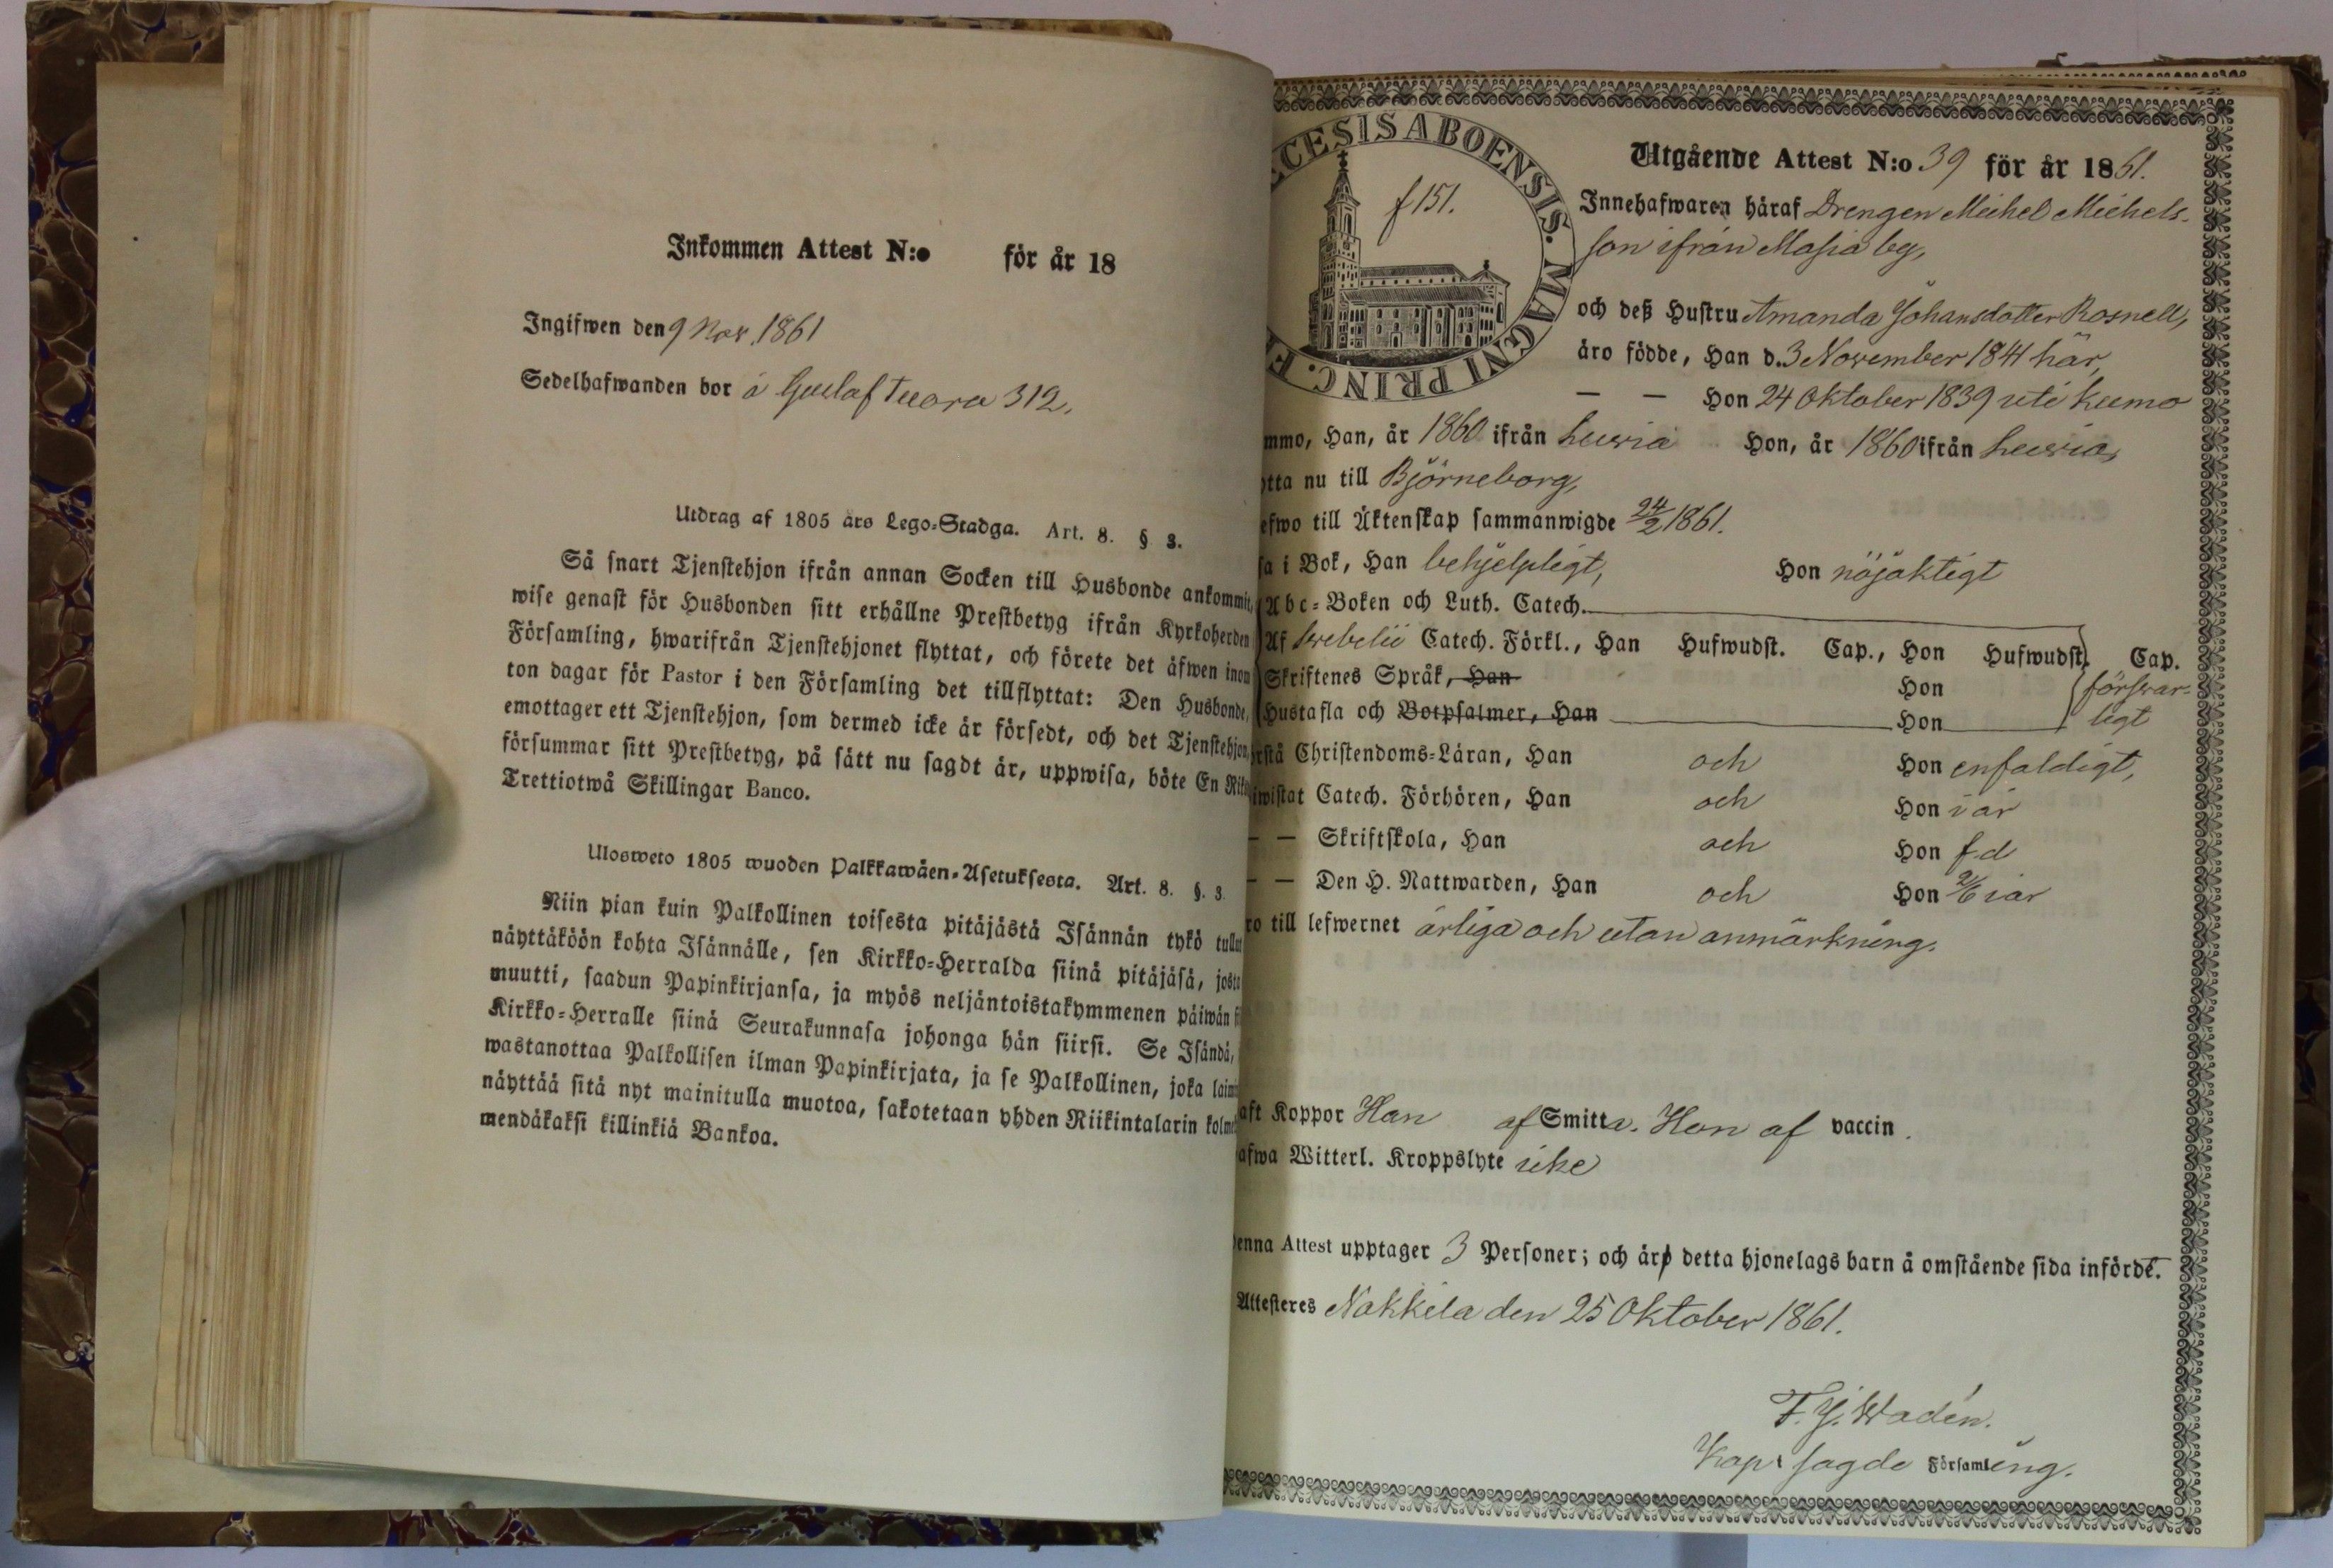 Inkommen Attest N:o för år 18
Ingifwen den 9 Nov. 1861
Sedelhafwanden bor å Gustaf Tuora 312.
Utdrag af 1805 års Lego-Stadga. Art. 8. § 3.
Så snart Tjenstehjon ifrån annan Socken till Husbonde ankommit,
wise genast för Husbonden sitt erhållne Prestbetyg ifrån Kyrkoherden
Församling, hwarifrån Tjenstehjonet flyttat, och förete det äfwen inom
ton dagar för Pastor i den Församling det tillflyttat: Den Husbonde,
emottager ett Tjenstehjon, som dermed icke är försedt, och det Tjenstehjon,
försummar sitt Prestbetyg, på sätt nu sagdt är, uppwisa, böte En Riks
Trettiotwå Skillingar Banco.
Ulosweto 1805 wuoden Palkkawäen-Asetuksesta. Art. 8. §. 3.
Niin pian kuin Palkollinen toisesta pitäjästä Isännän tykö tullut
näyttäköön kohta Isännälle, sen Kirkko-Herralda siinä pitäjäsä, josta
muutti, saadun Papinkirjansa, ja myös neljäntoistakymmenen päiwän si
Kirkko-Herralle siinä Seurakunnasa johonga hän siirsi. Se Isändä,
wastanottaa Palkollisen ilman Papinkirjata, ja se Palkollinen, joka laimi
näyttää sitä nyt mainitulla muotoa, sakotetaan yhden Riikintalarin kolme
mendäkaksi killinkiä Bankoa.
CESIS ABOENSIS. MAGNI PRINC. F
f 151.
Utgående Attest N:o 39 för år 1861.
Innehafwaren häraf Drengen Michel Michels-
son ifrån Masia by,
och deß Hustru Amanda Johansdotter Rosnell,
äro födde, Han d. 3 November 1841 här,
— — Hon 24 Oktober 1839 uti Kumo
mmo, Han, år 1860 ifrån Luvia Hon, år 1860 ifrån Luvia,
tta nu till Björneborg,
efwo till Äktenskap sammanwigde 24/2 1861.
sa i Bok, Han behjelpligt, Hon nöjaktigt
Abc-Boken och Luth. Catech.
Af Svebelii Catech. Förkl., Han Hufwudst. Cap., Hon Hufwudst. Cap.
Skriftenes Språk, Han Hon försvar-
Hustafla och Botpsalmer, Han Hon ligt
rstå Christendoms-Läran, Han och Hon enfaldigt,
iwistat Catech. Förhören, Han och Hon i år
— — Skriftskola, Han och Hon f.d
— — Den H. Nattwarden, Han och Hon 2/6 i år
ro till lefwernet ärliga och utan anmärkning.
aft Koppor Han af Smitta. Hon af vaccin.
afwa Witterl. Kroppslyte icke
enna Attest upptager 3 Personer; och äro detta hjonelags barn å omstående sida införde.
Attesteres Nakkila den 25 Oktober 1861.
F. J. Wadén.
Kap. i sagde Församling.